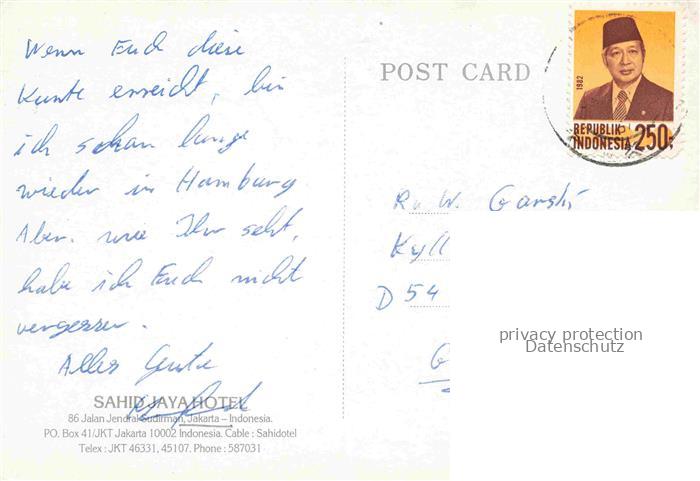 Wenn Euch diese
Karte erreicht, bin
ich schon lange
wieder in Hamburg.
Aber, wie Ihr seht,
habe ich Euch nicht
vergessen.
Alles Gute
SAHID JAYA HOTEL
86 Jalan Jendral Sudirman, Jakarta – Indonesia.
PO. Box 41/JKT Jakarta 10002 Indonesia. Cable : Sahidotel
Telex : JKT 46331, 45107. Phone : 587031
POST CARD
1982
REPUBLIK
INDONESIA 250
R. W.
Kyll
D 54
G
privacy protection
Datenschutz